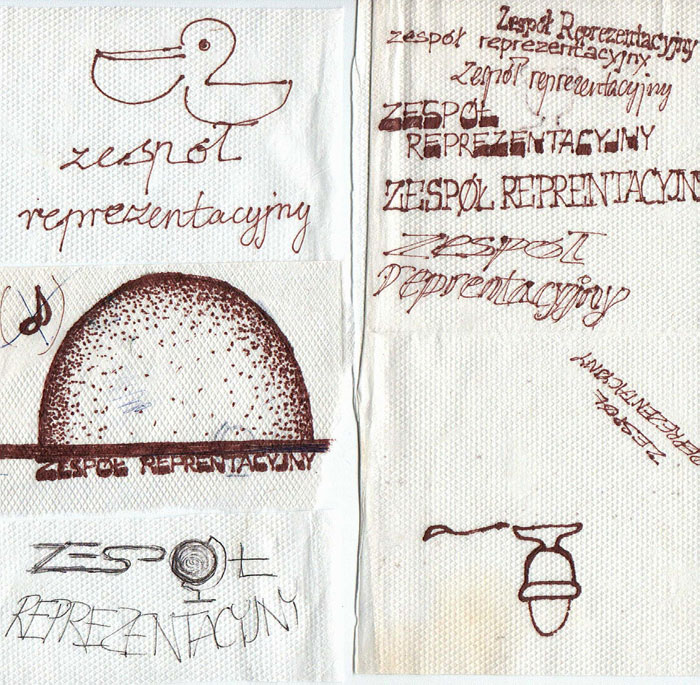 zespół
reprezentacyjny
ZESPÓŁ REPRENTACYJNY
ZESPÓŁ
REPREZENTACYJNY
Zespół Reprezentacyjny
zespół reprezentacyjny
Zespół reprezentacyjny
ZESPÓŁ
REPREZENTACYJNY
ZESPØŁ REPRENTACYJNY
Zespół
reprentacyjny
ZESPÓŁ
REPREZENTACYJNY